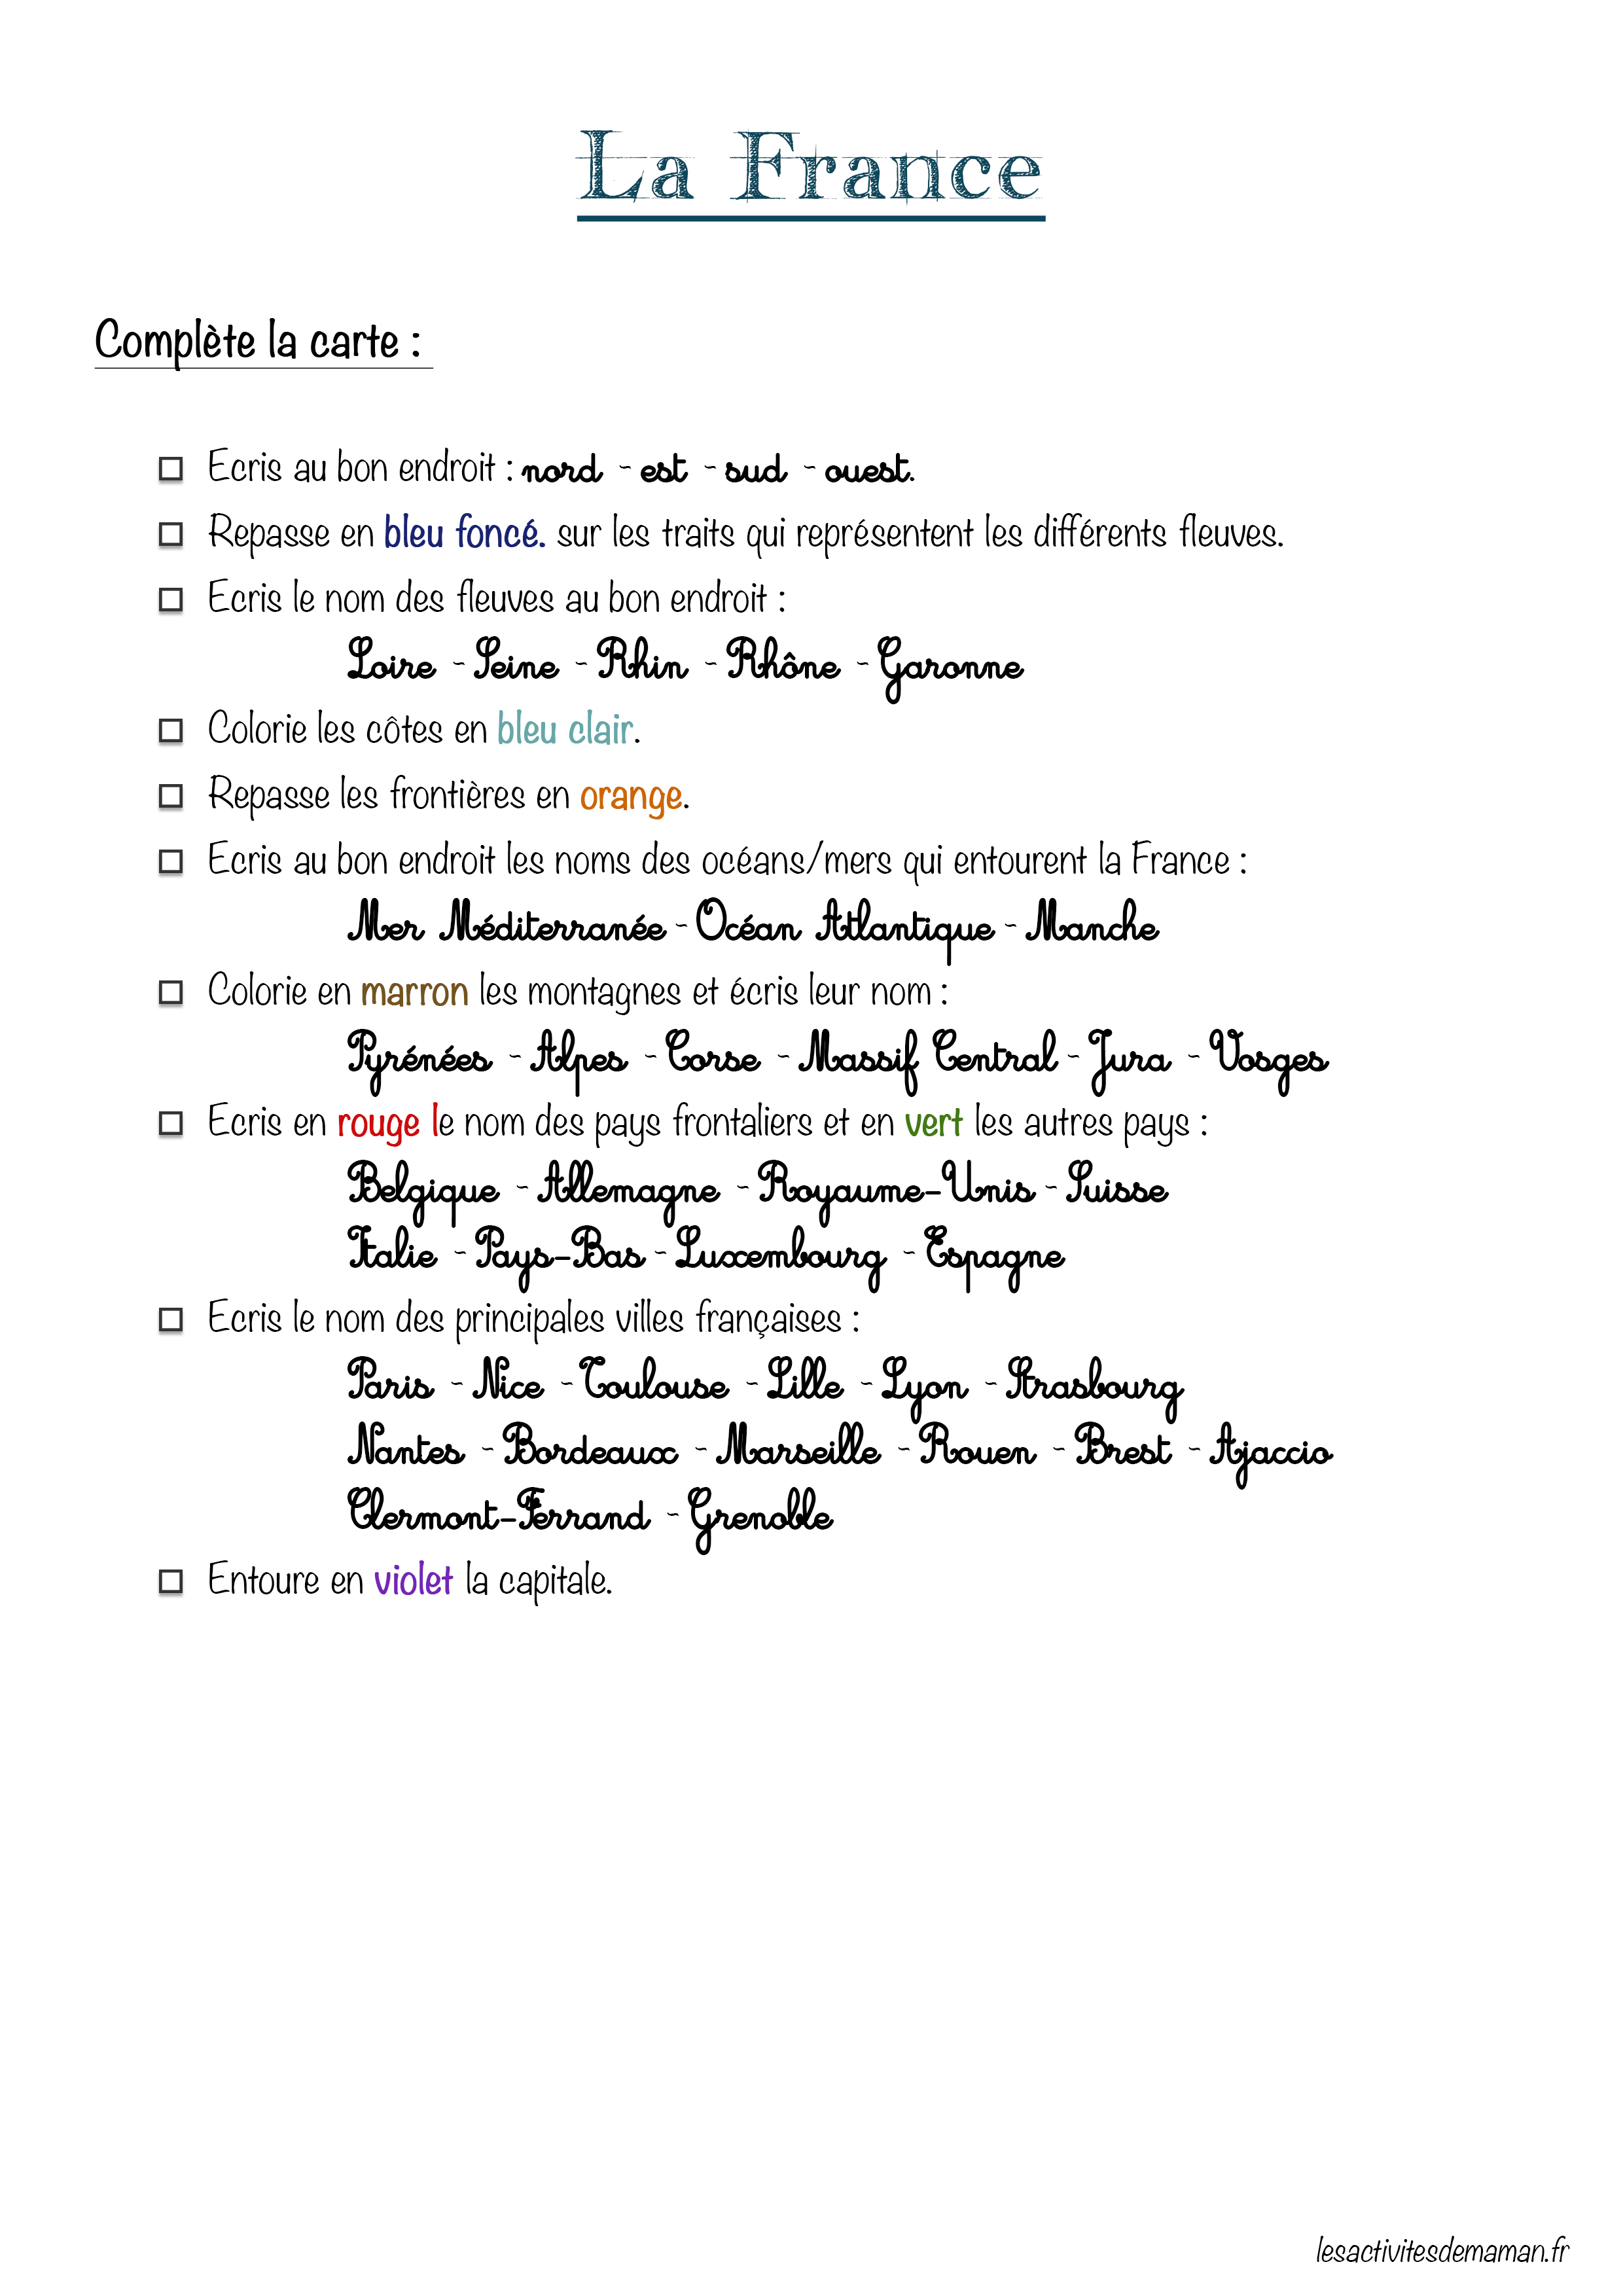 La France
Complète la carte :
Ecris au bon endroit : nord - est - sud - ouest.
Repasse en bleu foncé. sur les traits qui représentent les différents fleuves.
Ecris le nom des fleuves au bon endroit :
Loire - Seine - Rhin - Rhône - Garonne
Colorie les côtes en bleu clair.
Repasse les frontières en orange.
Ecris au bon endroit les noms des océans/mers qui entourent la France :
Mer Méditerranée - Océan Atlantique - Manche
Colorie en marron les montagnes et écris leur nom :
Pyrénées - Alpes - Corse - Massif Central - Jura - Vosges
Ecris en rouge le nom des pays frontaliers et en vert les autres pays :
Belgique - Allemagne - Royaume-Unis - Suisse
Italie - Pays-Bas - Luxembourg - Espagne
Ecris le nom des principales villes françaises :
Paris - Nice - Toulouse - Lille - Lyon - Strasbourg
Nantes - Bordeaux - Marseille - Rouen - Brest - Ajaccio
Clermont-Ferrand - Grenoble
Entoure en violet la capitale.
lesactivitesdemaman.fr